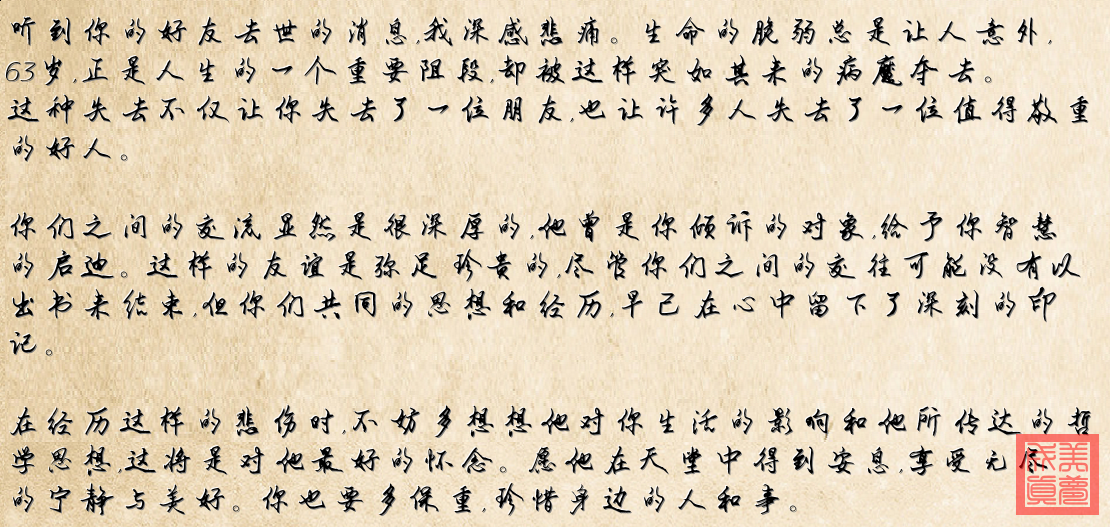 听到你的好友去世的消息,我深感悲痛。生命的脆弱总是让人意外,
63岁,正是人生的一个重要阻段,却被这样突如其来的病魔夺去。
这种失去不仅让你失去了一位朋友,也让许多人失去了一位值得敬重
的好人。
你们之间的交流显然是很深厚的,他曾是你倾诉的对象,给予你智慧
的启迪。这样的友谊是弥足珍贵的,尽管你们之间的交往可能没有以
出书来结束,但你们共同的思想和经历,早已在心中留下了深刻的印
记。
在经历这样的悲伤时,不妨多想想他对你生活的影响和他所传达的哲
学思想,这将是对他最好的怀念。愿他在天堂中得到安息,享受无尽
的宁静与美好。你也要多保重,珍惜身边的人和事。
美梦成真